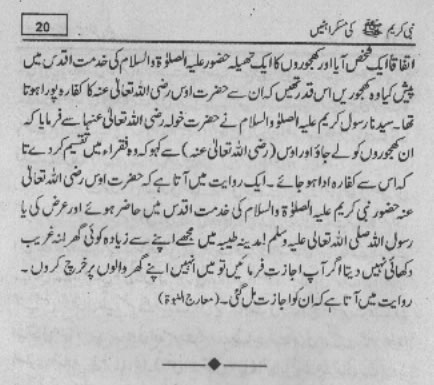 نبی کریم ﷺ کی مسکراہٹیں
20
اتفاقاً ایک شخص آیا اور کھجوروں کا ایک تھیلہ حضور علیہ الصلوٰۃ والسلام کی خدمت اقدس میں
پیش کیا وہ کھجوریں اس قدر تھیں کہ ان سے حضرت اوس رضی اللہ تعالیٰ عنہ کا کفارہ پورا ہوتا
تھا۔ سیدنا رسول کریم علیہ الصلوٰۃ والسلام نے حضرت خولہ رضی اللہ تعالیٰ عنہا سے فرمایا کہ
ان کھجوروں کو لے جاؤ اور اوس (رضی اللہ تعالیٰ عنہ) سے کہو کہ وہ فقراء میں تقسیم کر دے تا
کہ اس سے کفارہ ادا ہو جائے۔ ایک روایت میں آتا ہے کہ حضرت اوس رضی اللہ تعالیٰ
عنہ حضور نبی کریم علیہ الصلوٰۃ والسلام کی خدمت اقدس میں حاضر ہوئے اور عرض کی یا
رسول اللہ صلی اللہ تعالیٰ علیہ وسلم! مدینہ طیبہ میں مجھے اپنے سے زیادہ کوئی گھرانہ غریب
دکھائی نہیں دیتا اگر آپ اجازت فرمائیں تو میں انہیں اپنے گھر والوں پر خرچ کروں۔
روایت میں آتا ہے کہ ان کو اجازت مل گئی۔ (معارج النبوۃ)